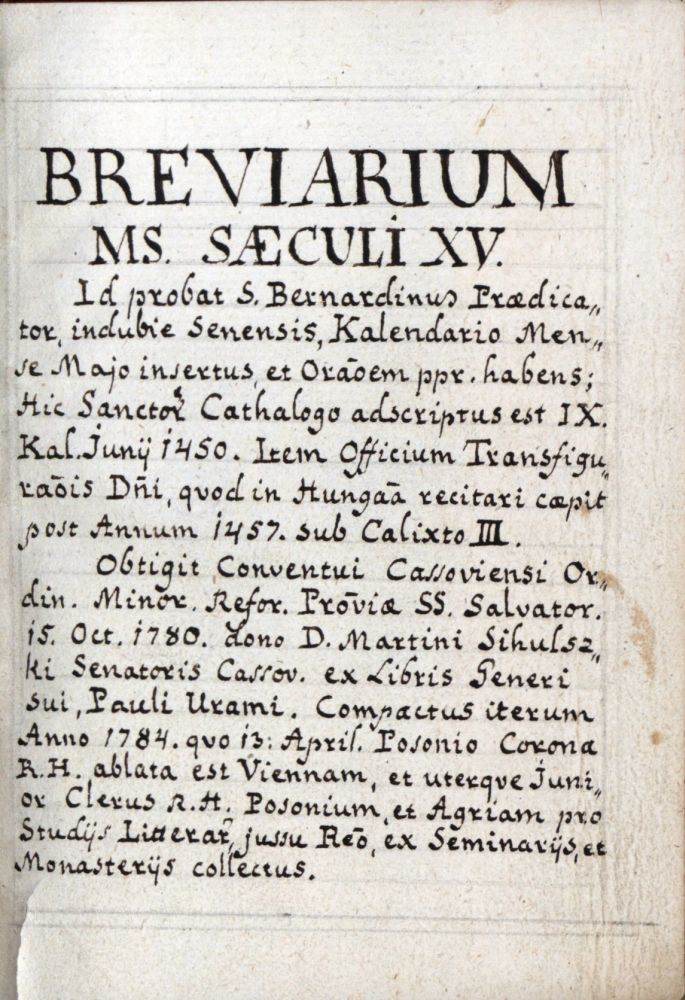 BREVIARIUM
MS. SÆCULI XV.
Id probat S. Bernardinus Prædica„
tor, indubie Senensis, Kalendario Men„
se Majo insertus, et Orāoem ppr. habens;
Hic Sanctor̃ Cathalogo adscriptus est IX.
Kal. Junÿ 1450. Item Officium Transfigu„
raōis Dñi, quod in Hungaā recitari cæpit
post Annum 1457. sub Calixto III.
Obtigit Conventui Cassoviensi Or„
din. Minor. Refor. Prōviæ SS. Salvator.
15. Oct. 1780. dono D. Martini Sihulsz„
ki Senatoris Cassov. ex Libris Generi
sui, Pauli Urami. Compactus iterum
Anno 1784. quo 13: April. Posonio Corona
R.H. ablata est Viennam, et uterque Juni„
or Clerus R.H. Posonium, et Agriam pro
Studÿs Litterar̃, jussu Reō, ex Seminarÿs, et
Monasterÿs collectus.